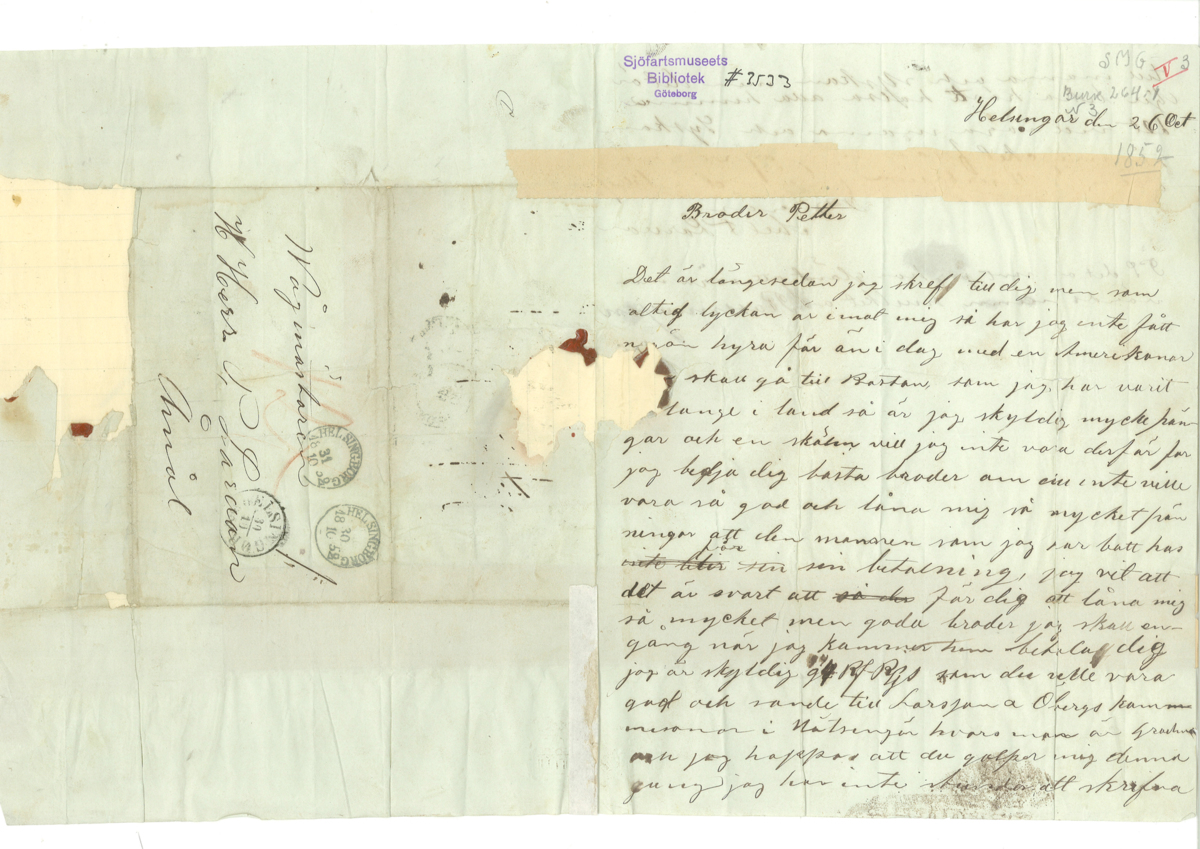 Sjöfartsmuseets
Bibliotek
Göteborg
# 3533
SMG V 3
Helsingör den 26 Oct
1852
Broder Petter
Det är längesedan jag skref till dig men som
altid lyckan är imot mig så har jag inte fått
hyra för än i dag med en Amerikanar
skall gå till Bostan, som jag har varit
lange i land så är jag skyldig mycke pän-
gar och en skälm vill jag inte vara derför får
jag bedja dig basta broder om du inte ville
vara så god och låna mig så mycket pän
ningar att den mannen som jag har bott hos
får
inte blir sin sin betalning, jag vet att
det är svart att så du för dig att låna mig
så mycket men goda broder jag skall en-
gång når jag kammer hem betala dig
jag är skyldig som du ville vara
god och sande till Öbergs
i hvars man är
och jag happas att du galper mig denna
gang jag har inte att skrifva
Wågmästaren
H Herr P Larsson
Åmål
HELSINGBORG
31
10
HELSINGBORG
30
10
HELSINGÖR